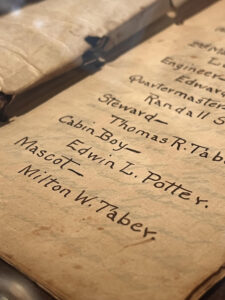 Engineer—
Edward
Quartermaster
Randall S
Steward—
Thomas R. Tabe
Cabin Boy—
Edwin L. Potter.
Mascot—
Milton W. Taber.